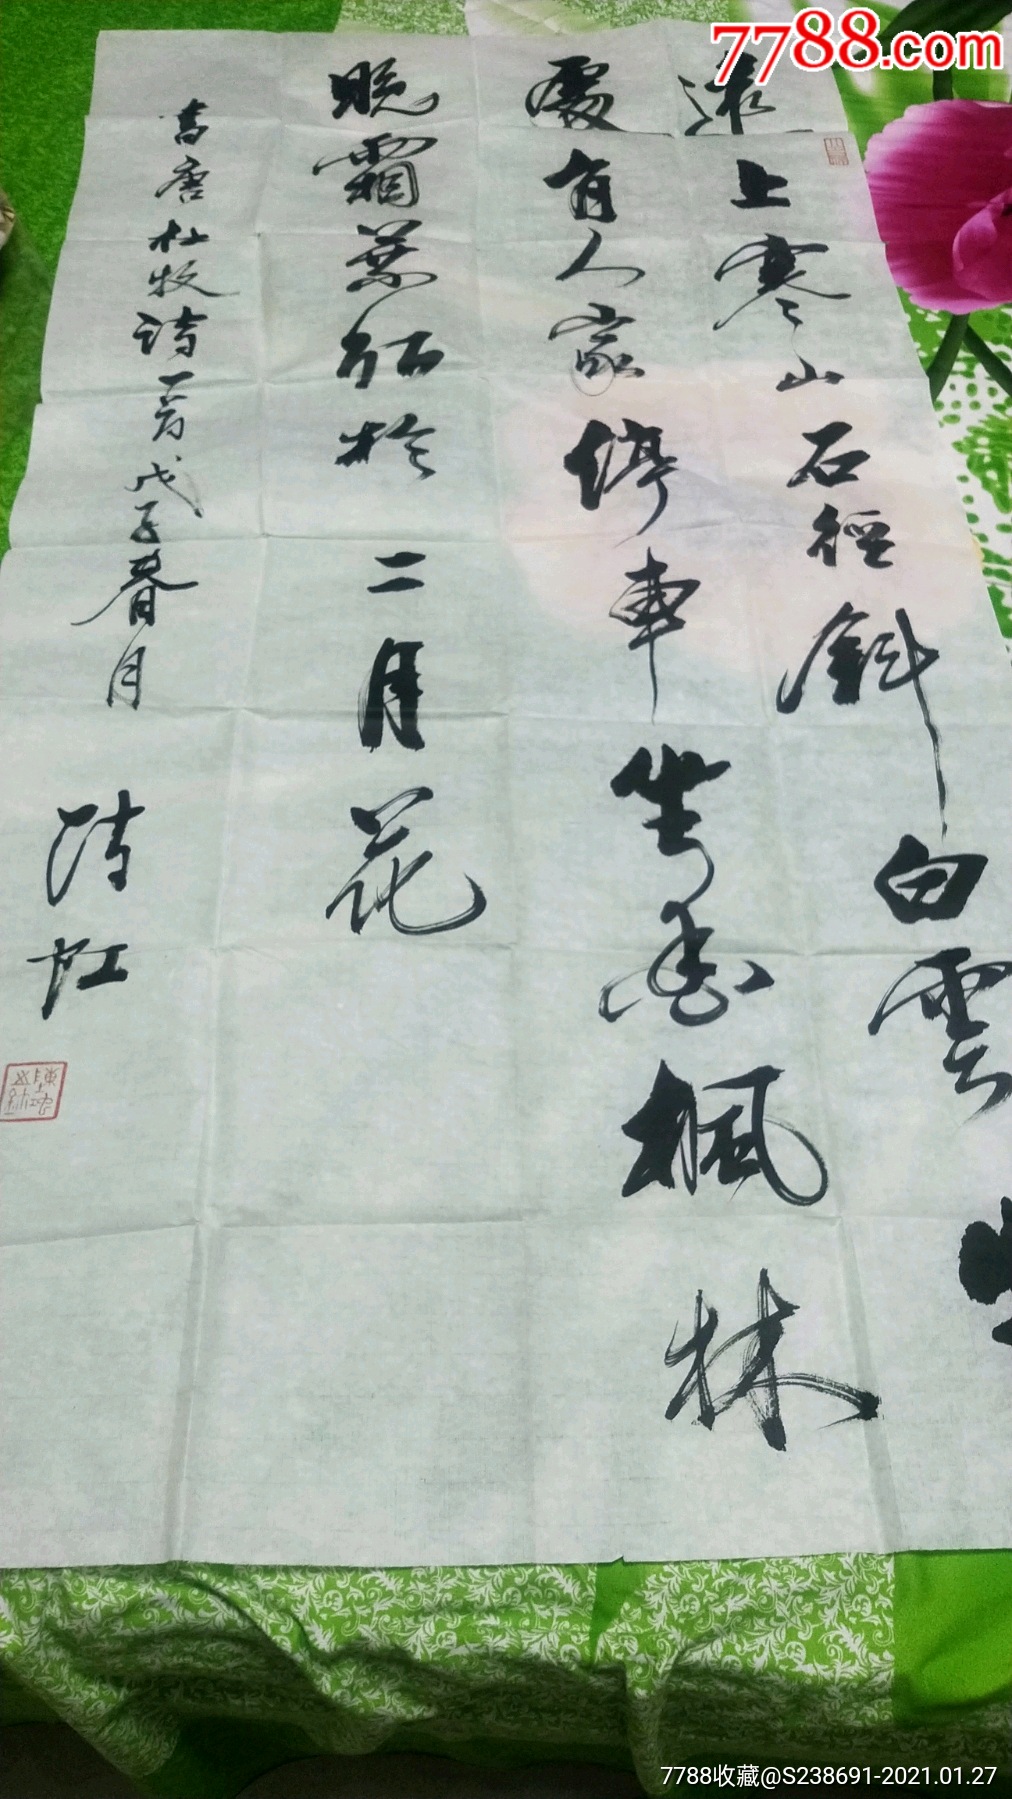 7788.com
遠上寒山石徑斜白雲生
處有人家停車坐愛楓林
晚霜葉紅於二月花
書唐杜牧詩一首戊子春月
7788收藏@S238691-2021.01.27